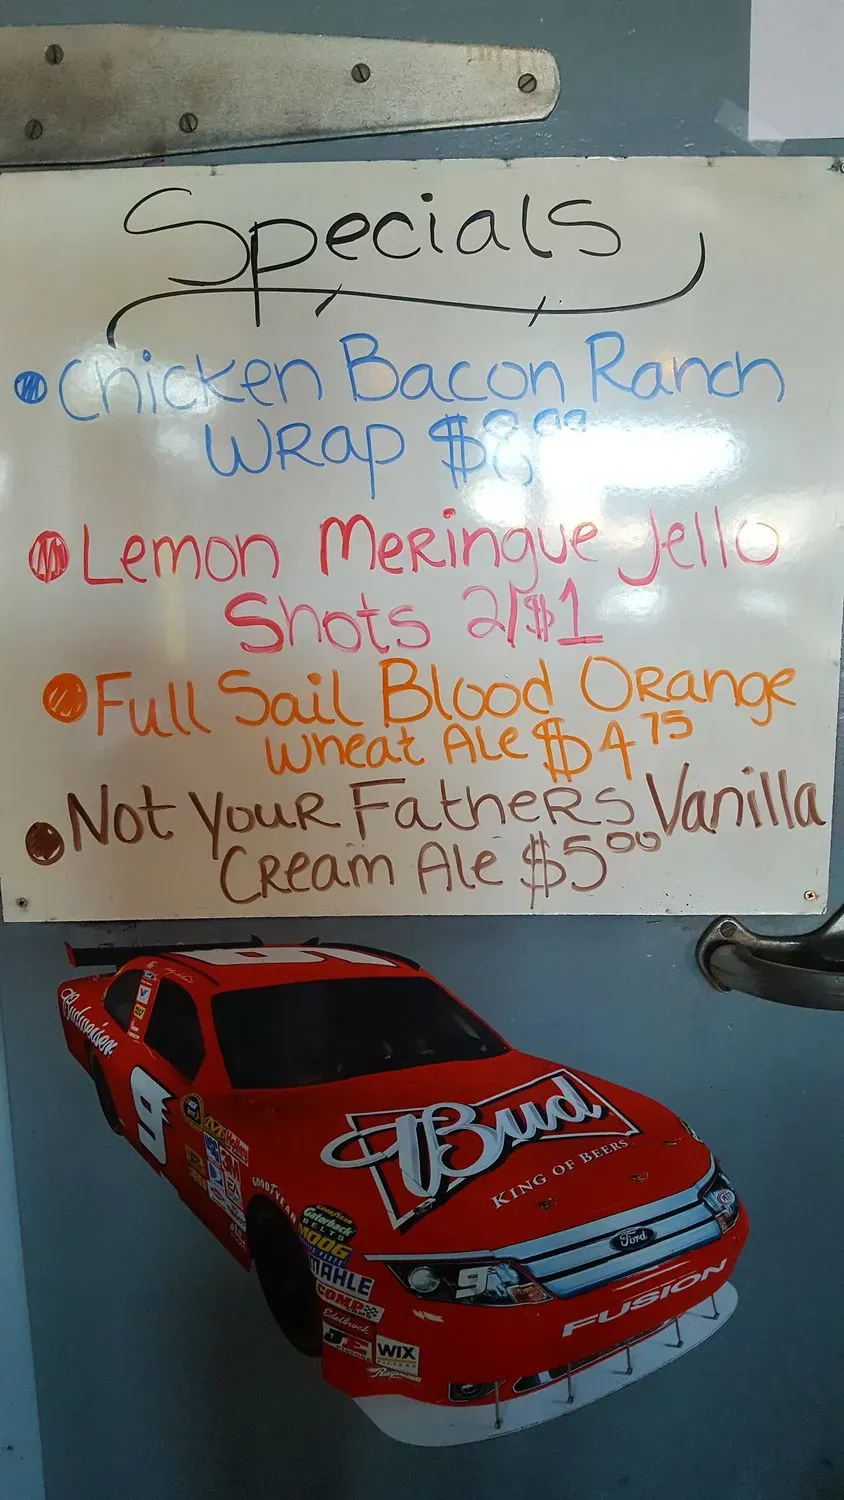 Specials
Chicken Bacon Ranch
WRAP $8.99
Lemon Meringue Jello
Shots 2/$1
Full Sail Blood Orange
Wheat Ale $4 75
Not Your Fathers Vanilla
Cream Ale $5 00
Budweiser
9
Bud
KING OF BEERS
3M
GOODYEAR
Goodyear
Gatorback
BELTS
MOOG
MAHLE
COMP
CAMS
Edelbrock
JE
WIX
FILTERS
Ford
9
FUSION